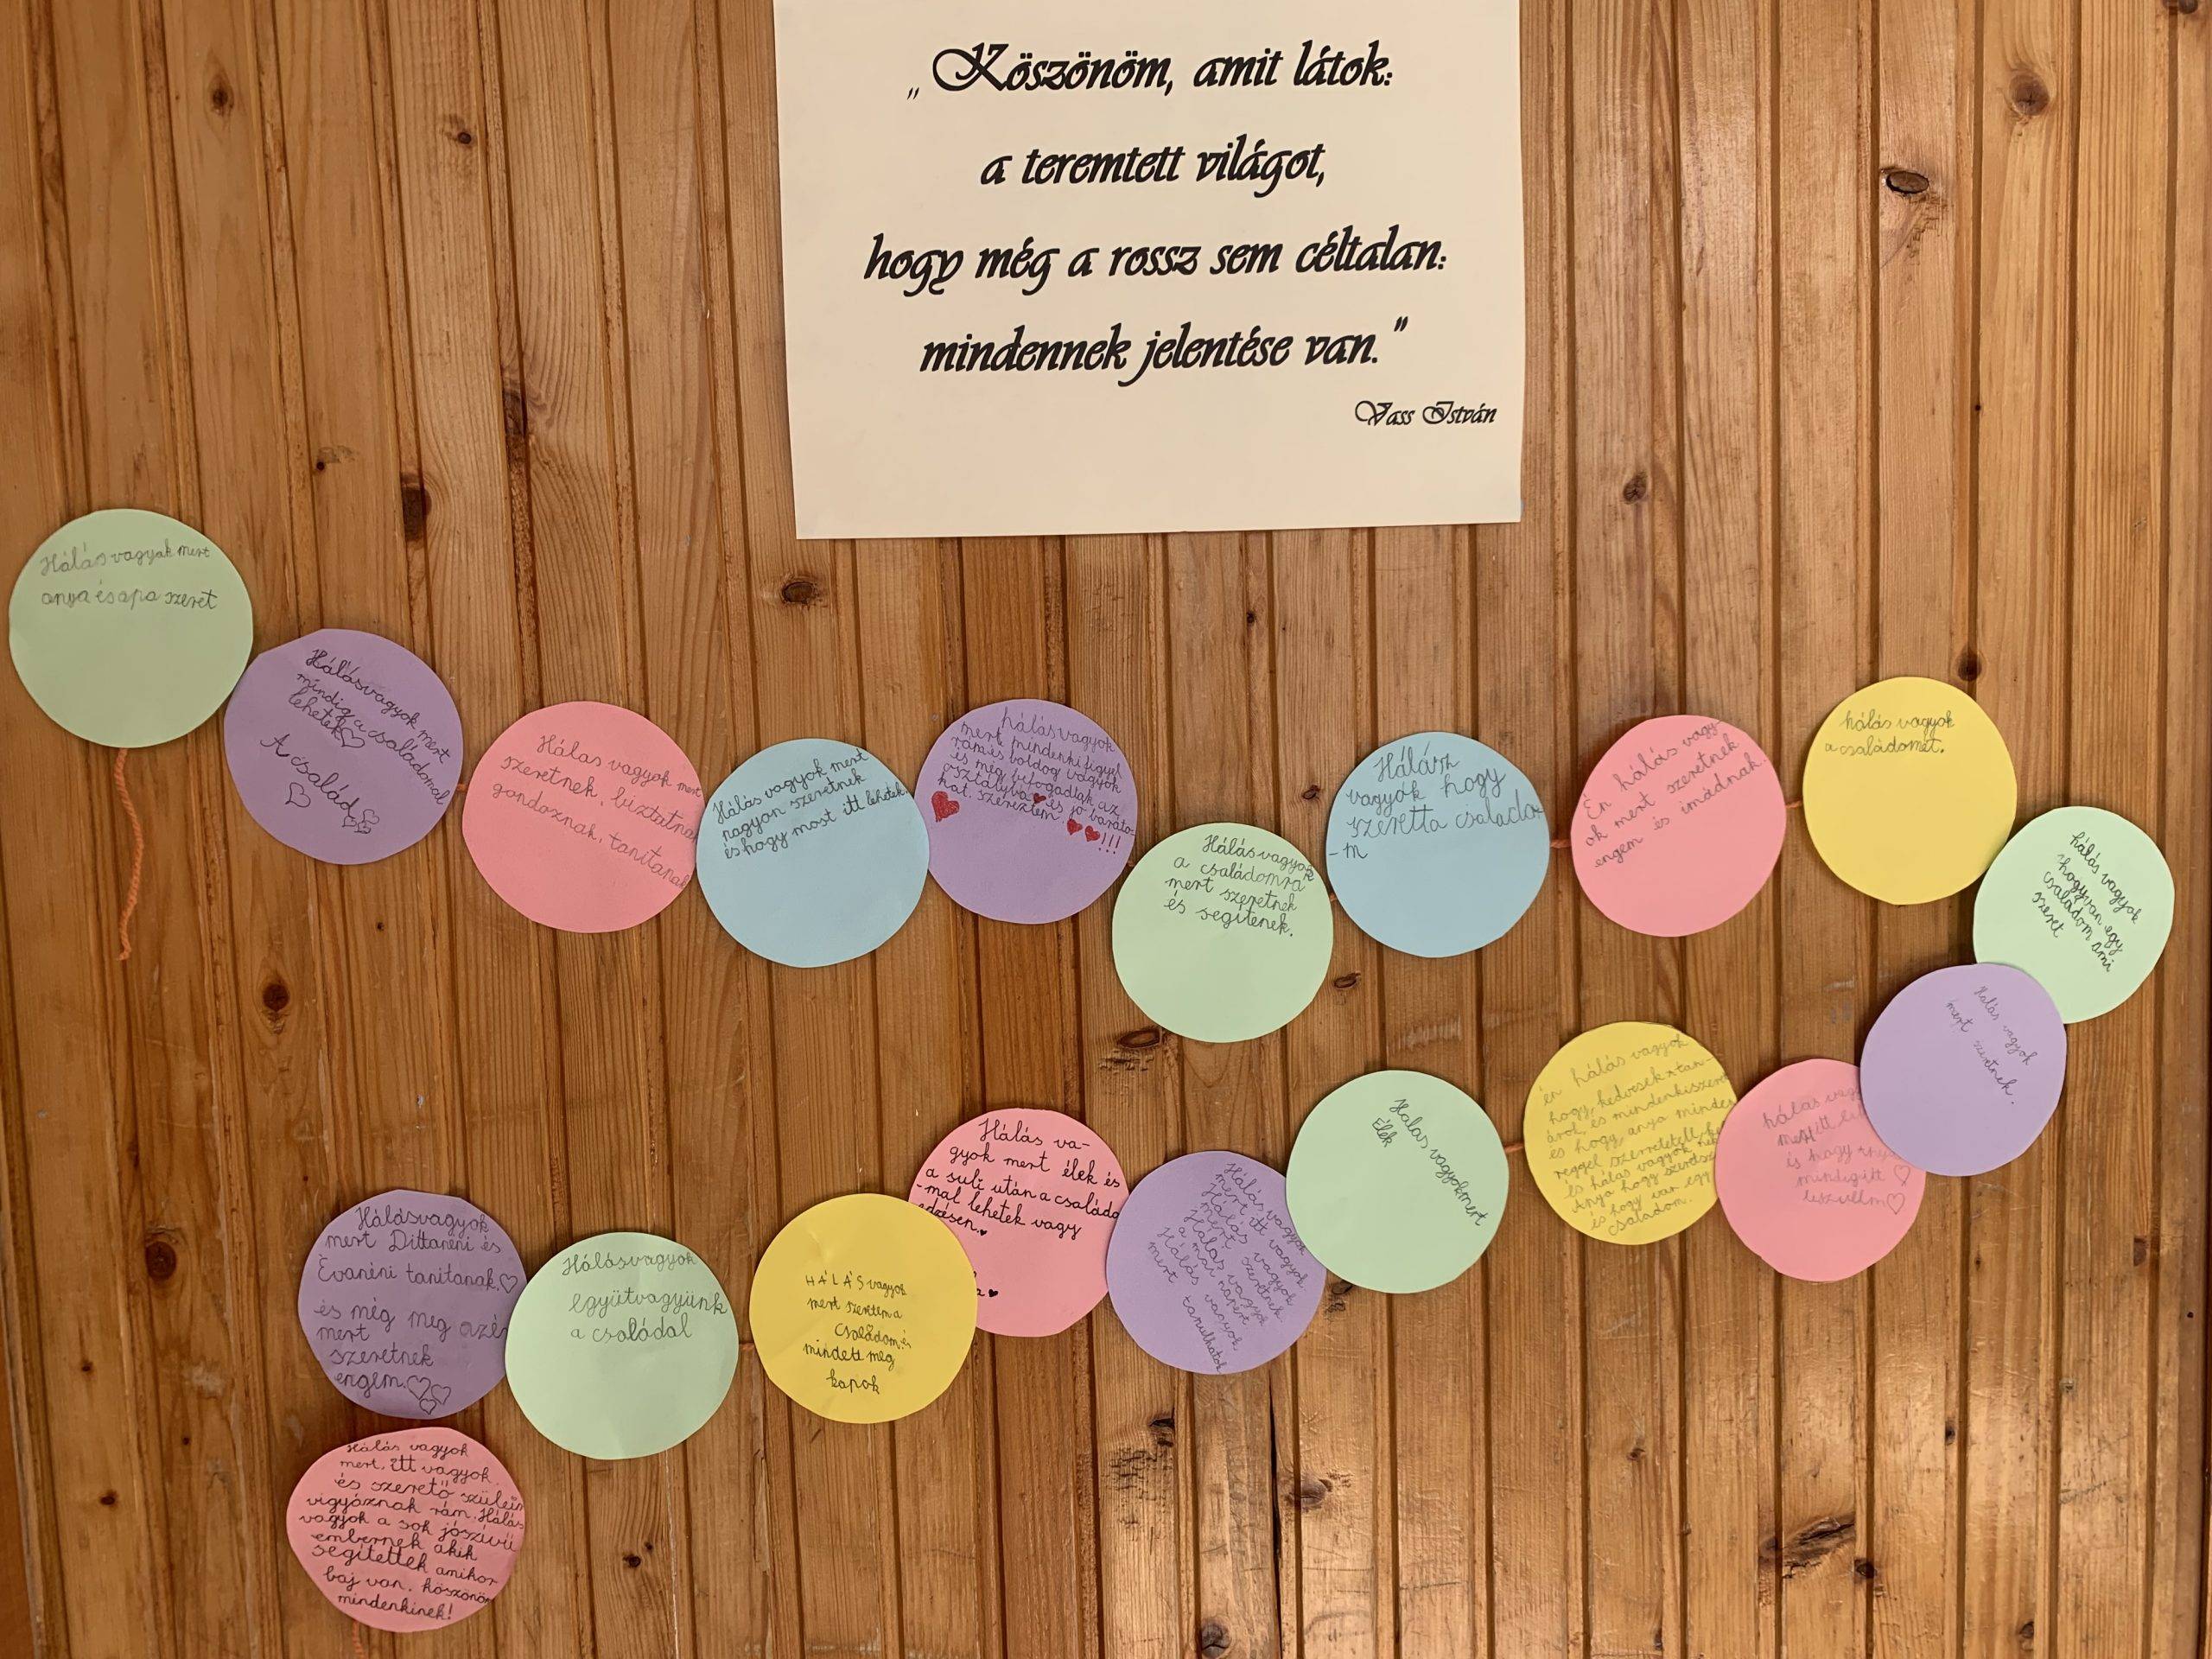 „Köszönöm, amit látok:
a teremtett világot,
hogy még a rossz sem céltalan:
mindennek jelentése van."
Vass István
Hálás vagyok mert
anya és apa szeret
Hálás vagyok mert
mindig a családomal
lehetek
A család
Hálas vagyok mert
szeretnek, biztatnak
gondoznak, tanítanak
Hálás vagyok mert
nagyon szeretnek
és hogy most itt lehetek.
hálás vagyok
mert mindenki figyel
rám és boldog vagyok
és még befogadtak az
osztályba és jó baráto-
kat szereztem !!!
Hálás vagyok
a családomra
mert szeretnek
és segítenek.
Hálász
vagyok hogy
szeretta csalado
-m
Én hálás vagy
ok mert szeretnek
engem és imádnak.
hálás vagyok
a családomét.
hálás vagyok
hogy van egy
családom ami
szeret
Halás vagyok
mert szeretnek.
hálás vagy
mert itt
és hogy anya
mindig itt
lesz vellm
én hálás vagyok
hogy kedvesek a tan-
árok és mindenki szeret
és hogy anya minden
reggel szerretettel
és hálás vagyok
Anya hogy
és hogy van egy
családom.
Halas vagyok mert
Élek
Hálás vagyok
mert itt vagyok
Hálás vagyok
mert szeretnek
Hálás vagyok
a mai napért
Hálás vagyok
mert tanulhatok
Hálás va-
gyok mert élek és
a suli után a családo
-mal lehetek vagy
edzésen.
a
HÁLÁS vagyok
mert szeretem a
családom és
mindent meg
kapok
Hálás vagyok
együtvagyünk
a csaladal
Hálás vagyok
mert Dittanéni és
Évanéni tanitanak.
és még meg azé
mert
szeretnek
engem.
Hálás vagyok
mert, itt vagyok
és szerető szüleim
vigyáznak rám. Hálás
vagyok a sok jószívű
embernek akik
segítettek amikor
baj van. köszönöm
mindenkinek!